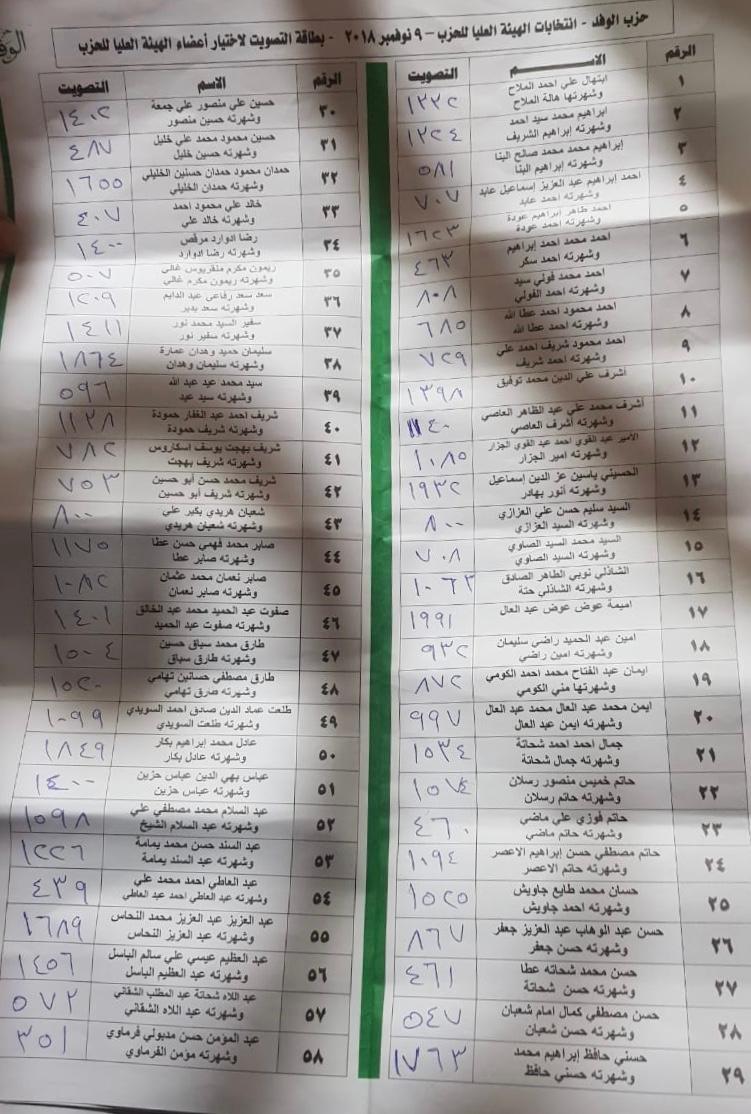 حزب الوفد - انتخابات الهيئة العليا للحزب - ٩ نوفمبر ٢٠١٨ - بطاقة التصويت لاختيار أعضاء الهيئة العليا للحزب
الرقم الاســـم التصويت
١ ابتهال علي احمد الملاح ١٢٢٢
وشهرتها هالة الملاح
٢ ابراهيم محمد سيد احمد ١٢٢٤
وشهرته إبراهيم الشريف
٣ إبراهيم محمد محمد صالح البنا ٥٨١
وشهرته إبراهيم البنا
٤ احمد إبراهيم عبد العزيز إسماعيل عابد ٧٠٧
وشهرته احمد عابد
٥ احمد طاهر إبراهيم عودة ١٦٢٣
وشهرته احمد عودة
٦ احمد محمد احمد إبراهيم ٤٦٣
وشهرته احمد سكر
٧ احمد محمد فولي سيد ٨٠٨
وشهرته احمد الفولي
٨ احمد محمود احمد عطا الله ٦٨٥
وشهرته احمد عطا الله
٩ احمد محمود شريف احمد علي ٧٢٩
وشهرته احمد شريف
١٠ أشرف علي الدين محمد توفيق ١٣٩٨
١١ أشرف محمد علي عبد الظاهر العاصي ١١٤٠
وشهرته أشرف العاصي
١٢ الأمير عبد القوي احمد عبد القوي الجزار ١٠٨٥
وشهرته امير الجزار
١٣ الحسيني ياسين عز الدين إسماعيل ١٩٣٢
وشهرته أنور بهادر
١٤ السيد سليم حسن علي العزازي ٨٠٠
وشهرته السيد العزازي
١٥ السيد محمد السيد الصاوي ٧٠٨
وشهرته السيد الصاوي
١٦ الشاذلي نوبي الطاهر الصادق ١٠٦٣
وشهرته الشاذلي حتة
١٧ اميمة عوض عوض عبد العال ١٩٩١
١٨ امين عبد الحميد راضي سليمان ٩٣٢
وشهرته امين راضي
١٩ ايمان عبد الفتاح محمد احمد الكومي ٨٧٢
وشهرتها مني الكومي
٢٠ ايمن محمد عبد العال محمد عبد العال ٩٩٧
وشهرته ايمن عبد العال
٢١ جمال احمد احمد شحاتة ١٥٣٤
وشهرته جمال شحاتة
٢٢ حاتم خميس منصور رسلان ١٥٧٤
وشهرته حاتم رسلان
٢٣ حاتم فوزي علي ماضي ٤٦٠
وشهرته حاتم ماضي
٢٤ حاتم مصطفي حسن إبراهيم الاعصر ١٠٩٤
وشهرته حاتم الاعصر
٢٥ حسان محمد طايع جاويش ١٥٢٥
وشهرته احمد جاويش
٢٦ حسن عبد الوهاب عبد العزيز جعفر ٨٦٧
وشهرته حسن جعفر
٢٧ حسن محمد شحاته عطا ٤٦١
وشهرته حسن شحاتة
٢٨ حسن مصطفي كمال امام شعبان ٥٤٧
وشهرته حسن شعبان
٢٩ حسني حافظ إبراهيم محمد ١٧٦٣
وشهرته حسني حافظ
الرقم الاسم التصويت
٣٠ حسين علي منصور علي جمعة ١٤٠٢
وشهرته حسين منصور
٣١ حسين محمود محمد علي خليل ٤٨٧
وشهرته حسين خليل
٣٢ حمدان محمود حمدان حسنين الخليلي ١٦٥٥
وشهرته حمدان الخليلي
٣٣ خالد علي محمود احمد ٤٠٧
وشهرته خالد علي
٣٤ رضا ادوارد مرقص ١٤٠٠
وشهرته رضا ادوارد
٣٥ ريمون مكرم منقريوس غالي ٥٠٧
وشهرته ريمون مكرم غالي
٣٦ سعد سعد رفاعي عبد الدايم ١٢٠٩
وشهرته سعد بدير
٣٧ سفير السيد محمد نور ١٤١١
وشهرته سفير نور
٣٨ سليمان حميد وهدان عمارة ١٨٦٤
وشهرته سليمان وهدان
٣٩ سيد محمد عيد عبد الله ٥٩٦
وشهرته سيد عيد
٤٠ شريف احمد عبد الغفار حمودة ١١٢٨
وشهرته شريف حمودة
٤١ شريف بهجت يوسف اسكاروس ٧٨٢
وشهرته شريف بهجت
٤٢ شريف محمد حسن أبو حسين ٧٥٣
وشهرته شريف أبو حسين
٤٣ شعبان هريدي بكير علي ٨٠٠
وشهرته شعبان هريدي
٤٤ صابر محمد فهمي حسن عطا ١١٧٥
وشهرته صابر عطا
٤٥ صابر نعمان محمد عثمان ١٠٨٢
وشهرته صابر نعمان
٤٦ صفوت عبد الحميد محمد عبد الخالق ١٤٠١
وشهرته صفوت عبد الحميد
٤٧ طارق محمد سباق حسين ١٥٠٤
وشهرته طارق سباق
٤٨ طارق مصطفي حسانين تهامي ١٥٢٠
وشهرته طارق تهامي
٤٩ طلعت عماد الدين صادق احمد السويدي ١٠٩٩
وشهرته طلعت السويدي
٥٠ عادل محمد إبراهيم بكار ١٨٤٩
وشهرته عادل بكار
٥١ عباس بهي الدين عباس حزين ١٤٠٠
وشهرته عباس حزين
٥٢ عبد السلام محمد مصطفي علي ١٥٩٨
وشهرته عبد السلام الشيخ
٥٣ عبد السند حسن محمد يمامة ١٢٢٦
وشهرته عبد السند يمامة
٥٤ عبد العاطي احمد محمد علي ٤٣٩
وشهرته عبد العاطي احمد عبد العاطي
٥٥ عبد العزيز عبد العزيز محمد النحاس ١٦٨٩
وشهرته عبد العزيز النحاس
٥٦ عبد العظيم عيسي علي سالم الباسل ١٤٥٦
وشهرته عبد العظيم الباسل
٥٧ عبد اللاه شحاتة عبد المطلب الشقاني ٥٧٢
وشهرته عبد اللاه الشقاني
٥٨ عبد المؤمن حسن مدبولي فرماوي ٣٥١
وشهرته مؤمن الفرماوي